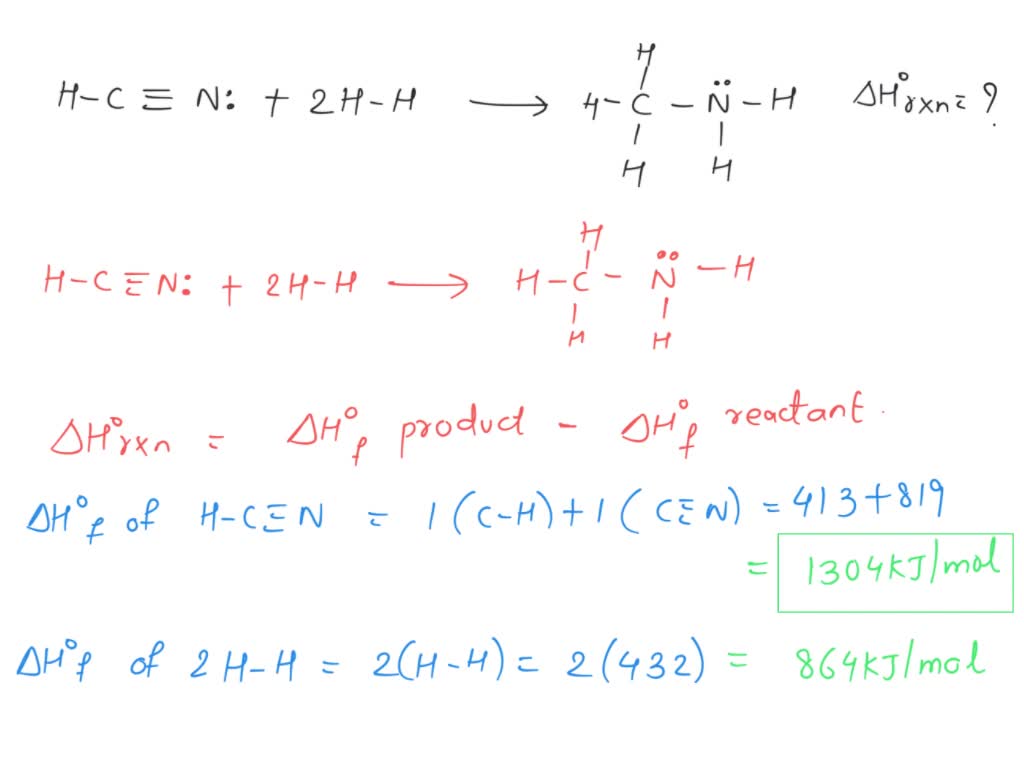 H
H-C≡N: + 2H-H ⟶ H-C-N̈-H ΔH°rxn = ?
H H
H
H-C≡N: + 2H-H ⟶ H-C-N̈-H
H H
ΔH°rxn = ΔH°f product - ΔH°f reactant.
ΔH°f of H-C≡N = 1(C-H)+1(C≡N) = 413+819
= 1304KJ/mol
ΔH°f of 2H-H = 2(H-H) = 2(432) = 864KJ/mol